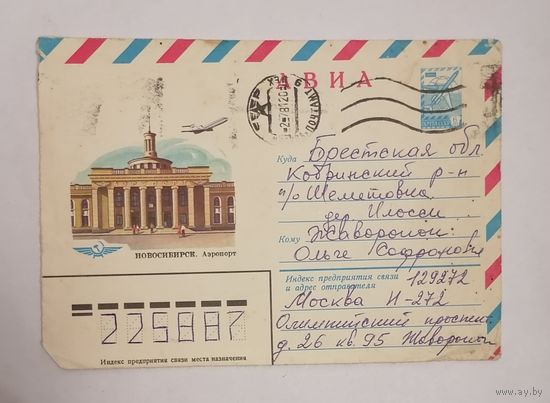 АВИА
СССР
ПОЧТАМТ
Куда Брестская обл.
Кобринский р-н
п/о Шеметовка
дер. Илосси
Кому Жаворонок
Ольге
Индекс предприятия связи
и адрес отправителя 129272
Москва И-272
Олимпийский проспект
д. 26 кв. 95 Жаворонок
НОВОСИБИРСК. Аэропорт
225887
Индекс предприятия связи места назначения
www.ay.by